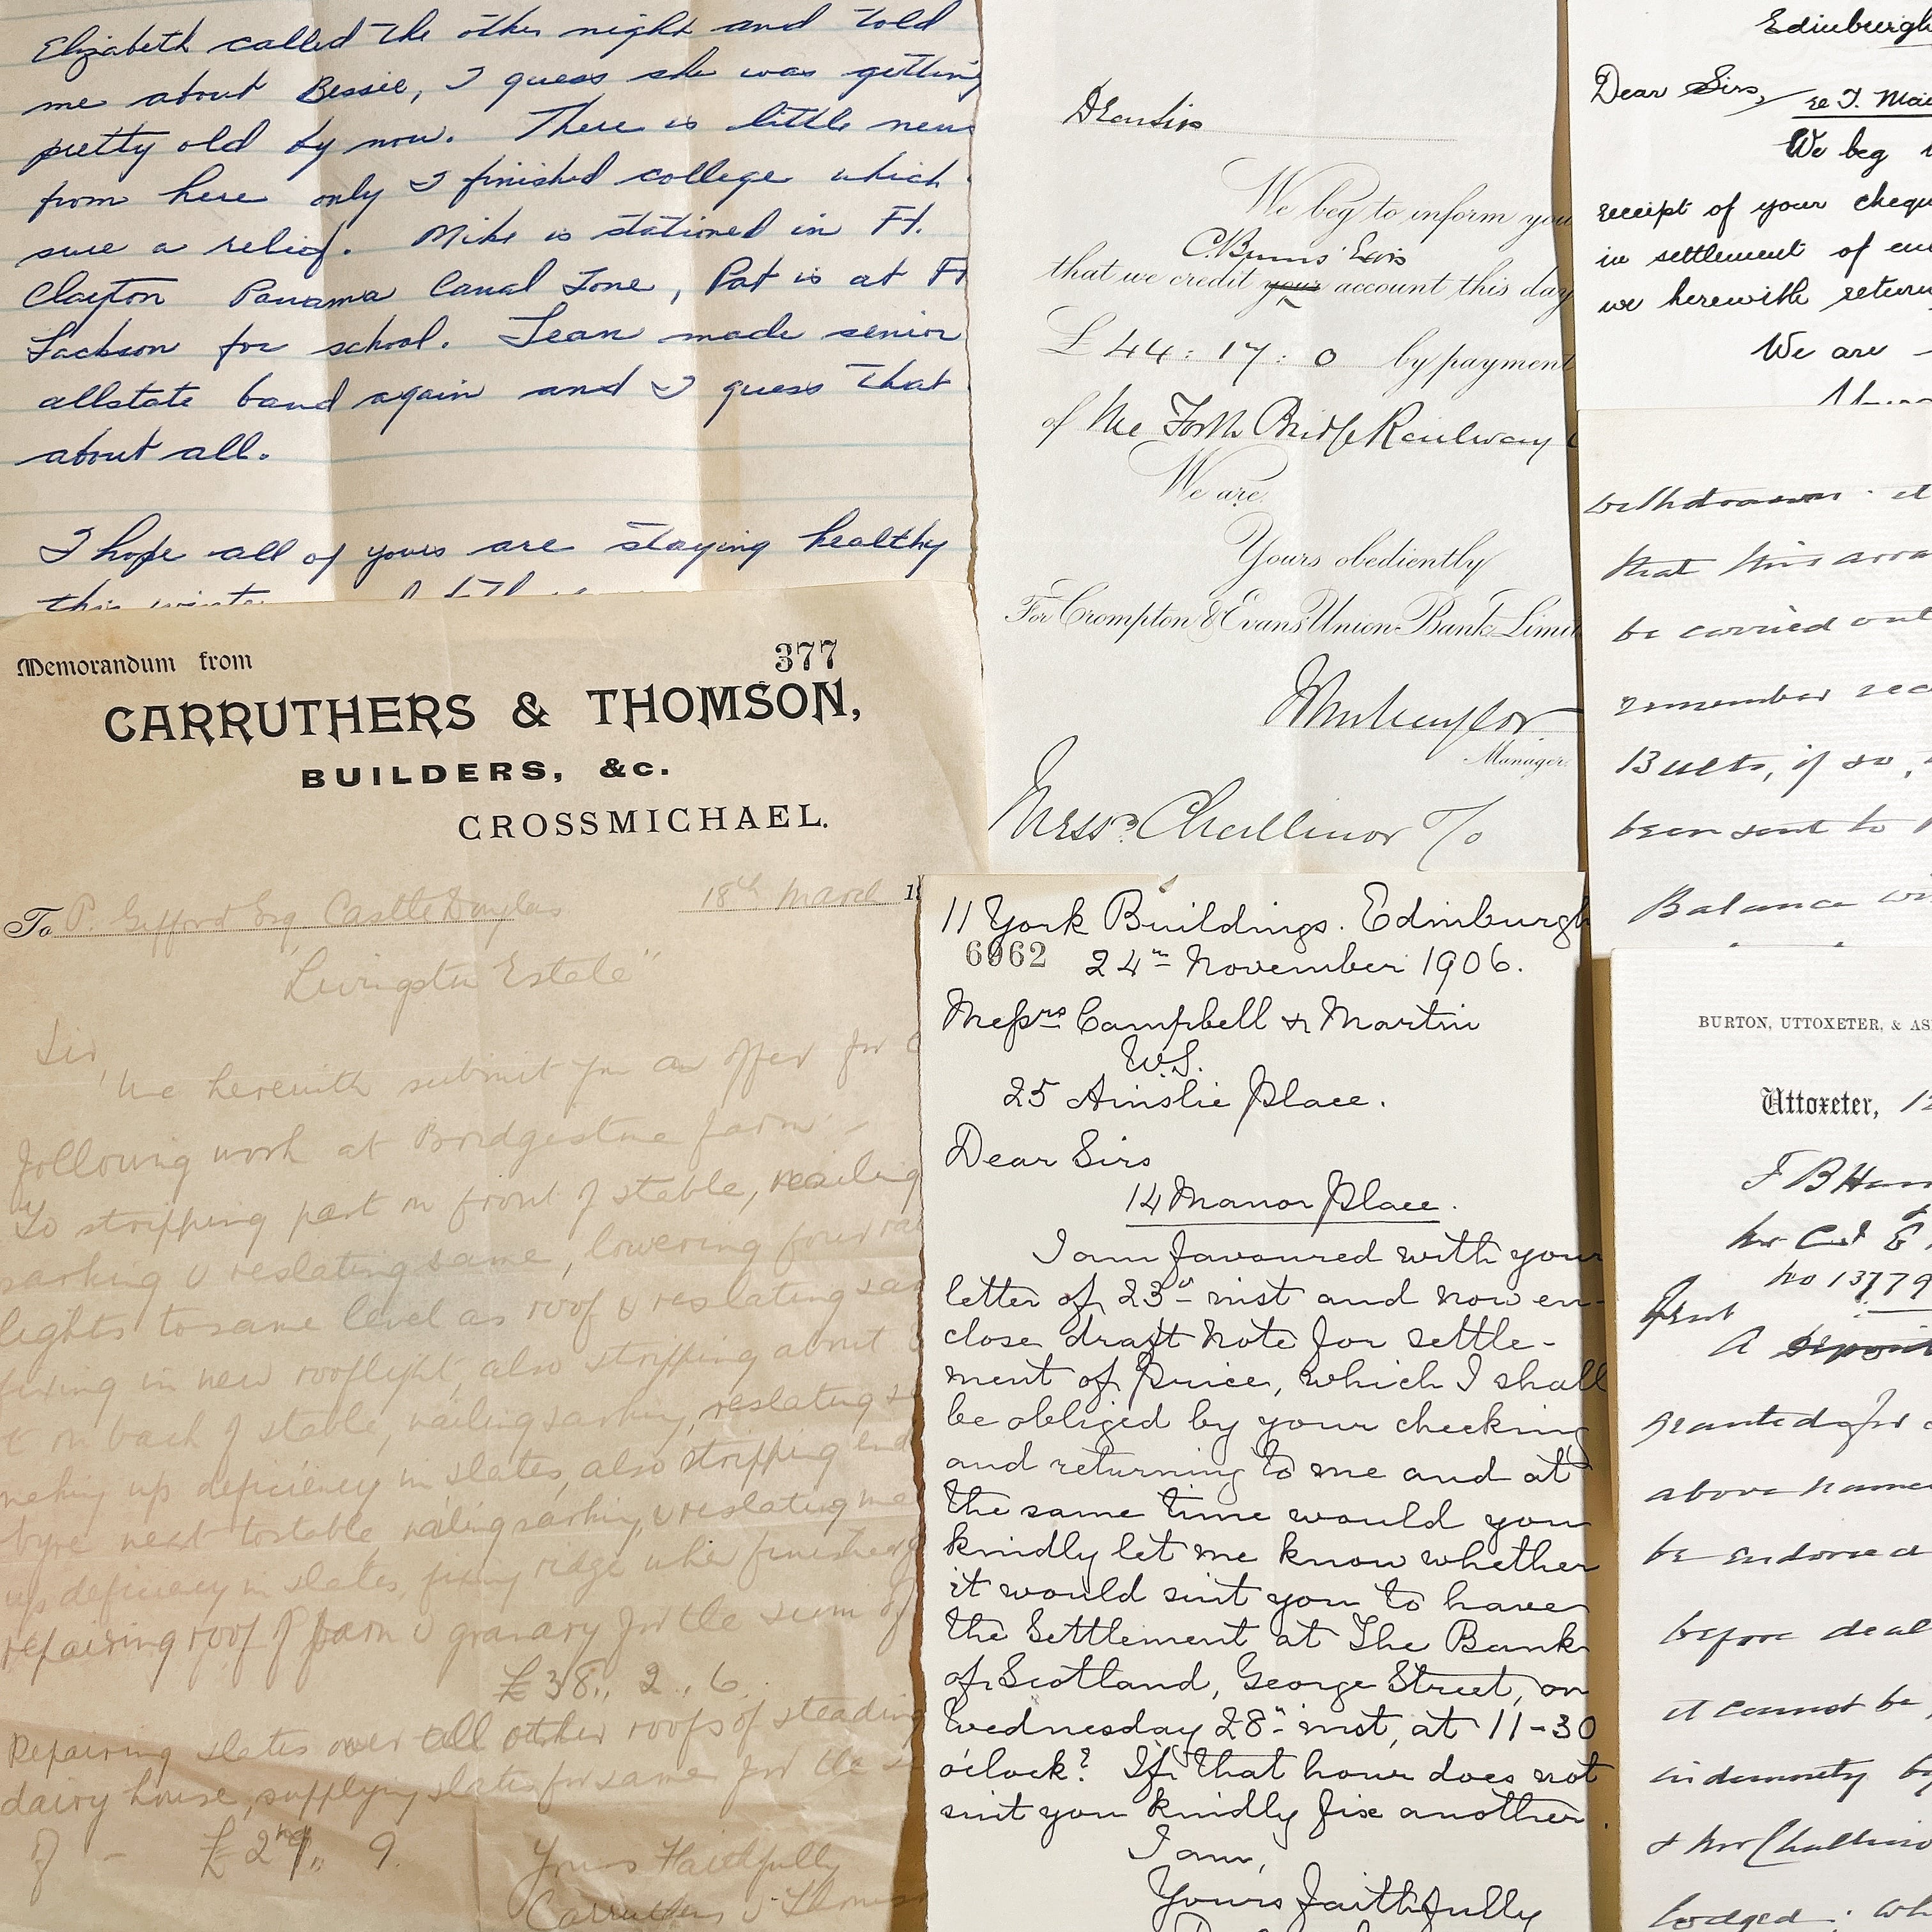 Elizabeth called the other night and told
me about Bessie, I guess she was getting
pretty old by now. There is little news
from here only I finished college which
sure a relief. Mike is stationed in Ft.
Clayton Panama Canal Zone, Pat is at Ft
Jackson for school. Jean made senior
allstate band again and I guess that
about all.
I hope all of yours are staying healthy
Memorandum from
377
CARRUTHERS & THOMSON,
BUILDERS, &c.
CROSSMICHAEL.
To P. Gifford Esq. Castle Douglas 18th March 1
"Livingston Estate"
Sir,
We herewith submit you an offer for
following work at Bridgestone farm -
To stripping part on front of stable, nailing
sarking & reslating same, lowering four
lights to same level as roof & reslating
fixing in new rooflight, also stripping about
on back of stable, nailing sarking, reslating
making up deficiency in slates, also stripping end
byre next to stable, nailing sarking, & reslating
up deficiency in slates, fixing ridge when finished
repairing roof of barn & granary for the sum of
£38,, 2,, 6
Repairing slates over all other roofs of steading
dairy house, supplying slates for same for the
of - £2 9.
Yours Faithfully
Carruthers & Thomson
Dear Sirs
We beg to inform you
that we credit your account this day
£44: 17: 0 by payment
of the Forth Bridge Railway
We are,
Yours obediently
For Crompton & Evans' Union Bank Limit
Manager.
Messrs. Challinor
11 York Buildings. Edinburgh
6962 24th November 1906.
Messrs Campbell & Martin
W.S.
25 Ainslie Place.
Dear Sirs
14 Manor Place.
I am favoured with your
letter of 23d inst and now en-
close draft Note for settle-
ment of Price, which I shall
be obliged by your checking
and returning to me and at
the same time would you
kindly let me know whether
it would suit you to have
the Settlement at The Bank
of Scotland, George Street, on
Wednesday 28th inst, at 11-30
o'clock? If that hour does not
suit you kindly fix another.
I am,
Yours faithfully
Edinburgh
Dear Sirs,
re T.
We beg
receipt of your cheque
in settlement of
we herewith return
We are
withdrawn.
that this
be carried out
remember
13 ulto, if so,
been sent to
Balance
BURTON, UTTOXETER, & AS
Uttoxeter, 1
F B
No 13779
Gent
A deposit
granted for
above named
be endorsed
before deal
it cannot be
indemnity by
& Mr Challinor
lodged.